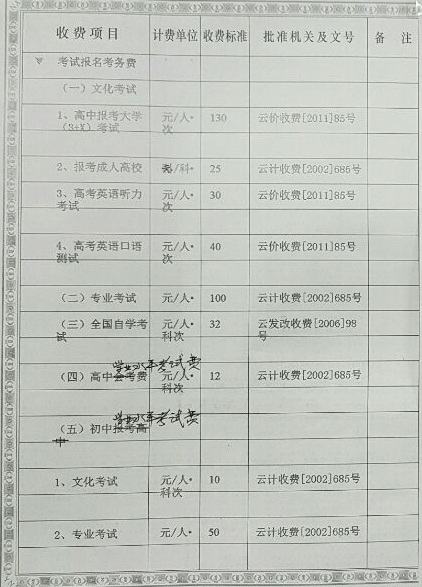 收费项目 计费单位 收费标准 批准机关及文号 备 注
考试报名考务费
（一）文化考试
1、高中报考大学 元/人· 130 云价收费[2011]85号
（3+X）考试 次
2、报考成人高校 /科· 25 云计收费[2002]685号
3、高考英语听力 元/人· 30 云价收费[2011]85号
考试 次
4、高考英语口语 元/人· 40 云价收费[2011]85号
测试 次
（二）专业考试 元/人· 100 云计收费[2002]685号
（三）全国自学考 元/人· 32 云发改收费[2006]98
试 科次 号
学业水平考试费
（四）高中会考费 元/人· 12 云计收费[2002]685号
科次
学业水平考试费
（五）初中报考高
中
1、文化考试 元/人· 10 云计收费[2002]685号
科次
2、专业考试 元/人· 50 云计收费[2002]685号